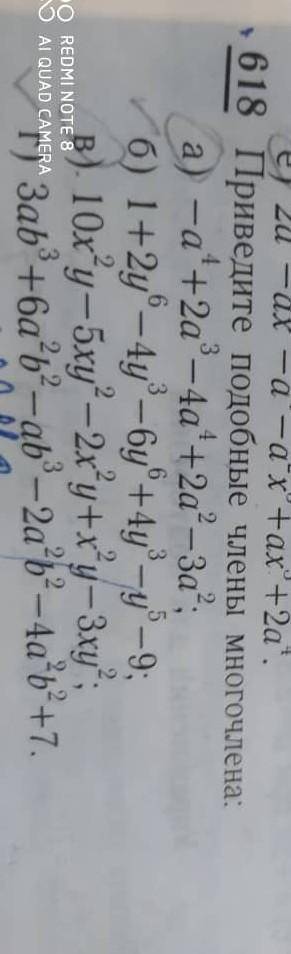 е) 2a⁴−ax³−a⁴−a²x³+ax³+2a⁴.
618 Приведите подобные члены многочлена:
а) −a⁴+2a³−4a⁴+2a²−3a²;
б) 1+2y⁶−4y³−6y⁶+4y³−y⁵−9;
в) 10x²y−5xy²−2x²y+x²y−3xy²;
г) 3ab³+6a²b²−ab³−2a²b²−4a²b²+7.
REDMI NOTE 8
AI QUAD CAMERA